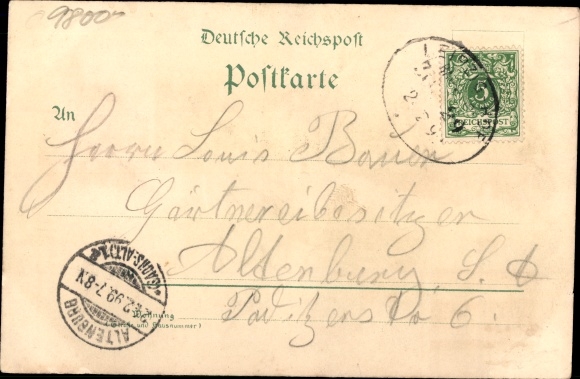 9800
Deutsche Reichspost
Postkarte
An
Herrn Louis Bauer
Gärtnereibesitzer
Altenburg, S. A
Wohnung
(Straße und Hausnummer)
5
REICHSPOST
ALTENBURG
2.99.7-8N
(SACHS-ALT)